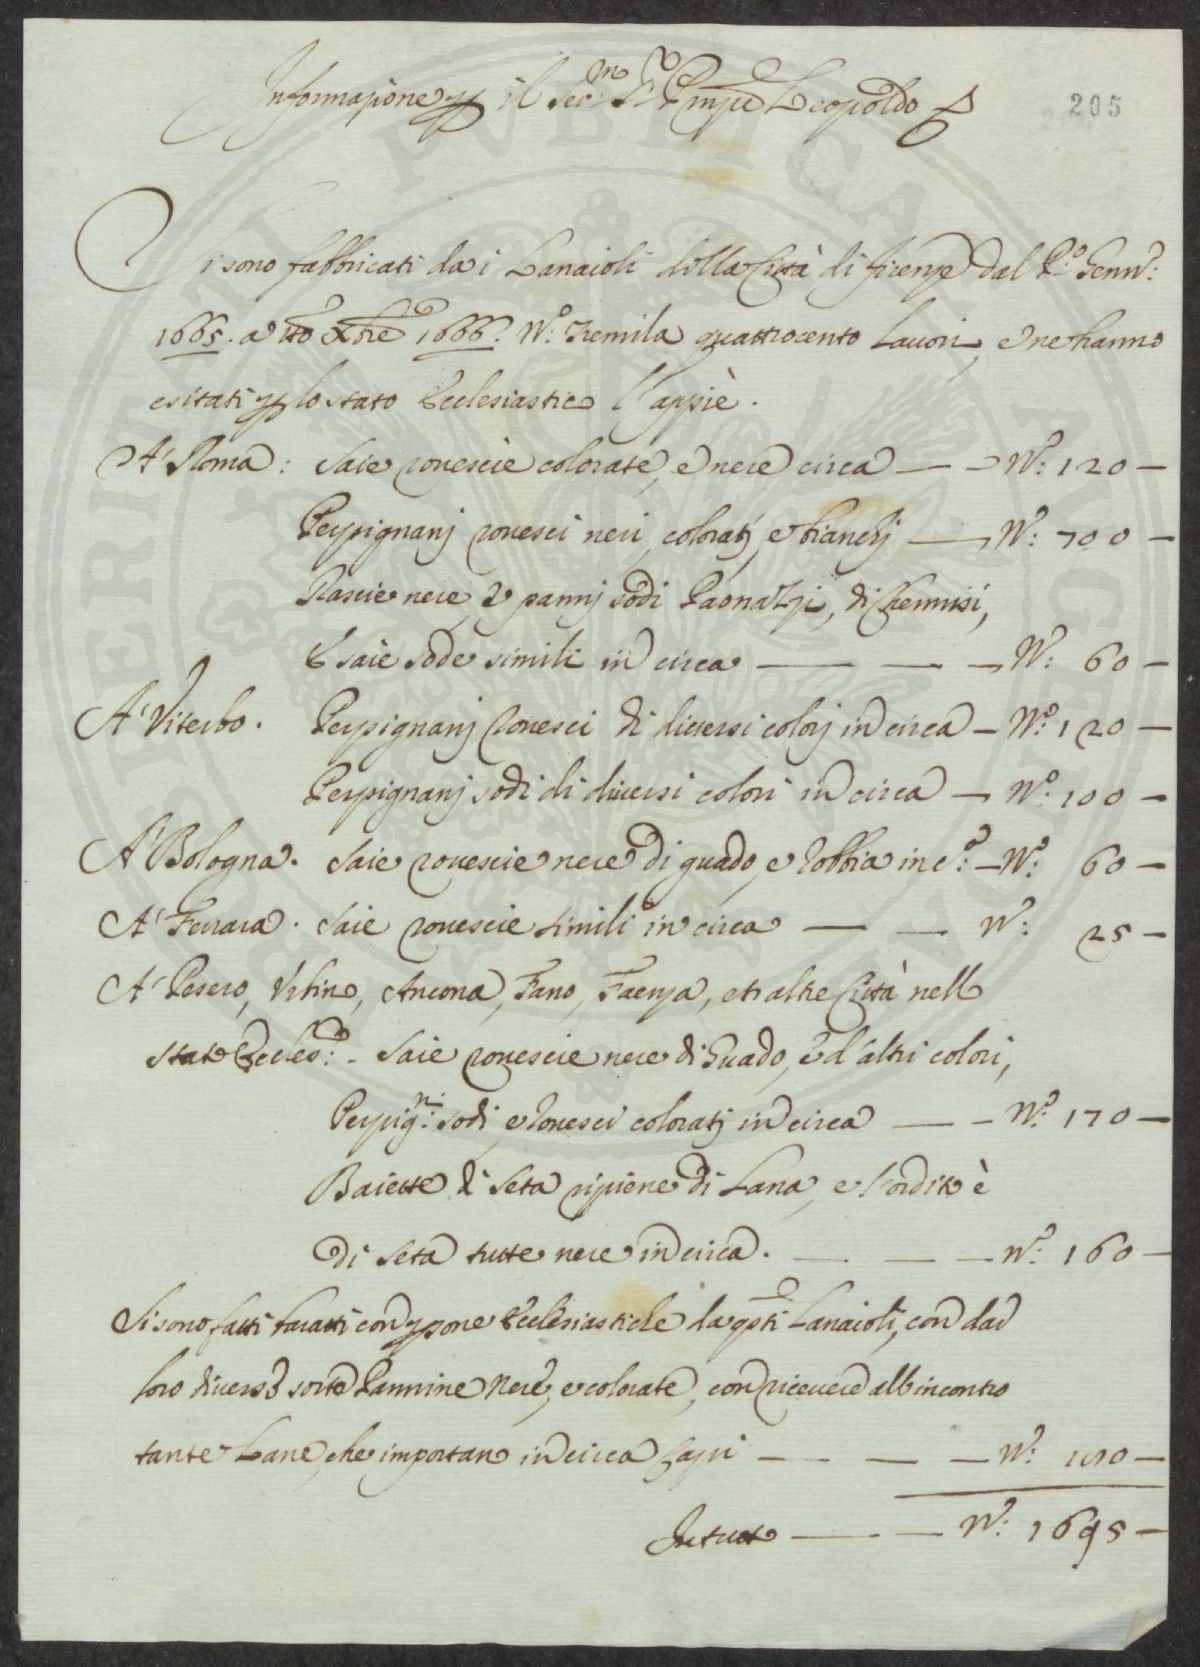 Informazione p il Ser.mo S.r Prinpe Leopoldo
205
Si sono fabbricati da i Lanaioli della Città di firenze dal P.o Genn.o:
1665. a tto Xbre 1666. N.o: Tremila quattrocento Lauori, e ne hanno
esitati p lo stato Ecclesiastico l'appiè.
A' Roma: Saie rouescie colorate, e nere circa — — N.o: 120 —
Perpignanj rouesci neri, coloratj, e bianchj — N.o: 700 —
Rascie nere, e pannj sodi Paonazzi, di Chermisi,
E saie sode simili in circa — — — N.o: 60 —
A' Viterbo. Perpignanj rouesci di diuersi colorj in circa — N.o: 120 —
Perpignanj sodi di diuersi colori in circa — N.o: 100 —
A' Bologna. Saie rouescie nere di guado, e robbia in c.a — N.o: 60 —
A' Ferrara. Saie rouescie simili in circa — — N.o: 25 —
A' Pesero, Vrbino, Ancona, Fano, Faenza, et altre Città nell
stato Eccles.o: - Saie rouescie nere di Guado, e d'altri colori,
Perpig.ni: sodi, e rouesci coloratj in circa — — N.o: 170 —
Baiette di Seta ripiene di Lana, e l'ordito è
di Seta tutte nere in circa. — — — N.o: 160 —
Si sono fatti baratti con psone Ecclesiastiche da qsti Lanaioli, con dar
loro diuerse sorte Pannine Nere, e colorate, con riceuere all'incontro
tante Lane, che importano in circa Capi — — — N.o: 180 —
In tutto — — N.o: 1695 —